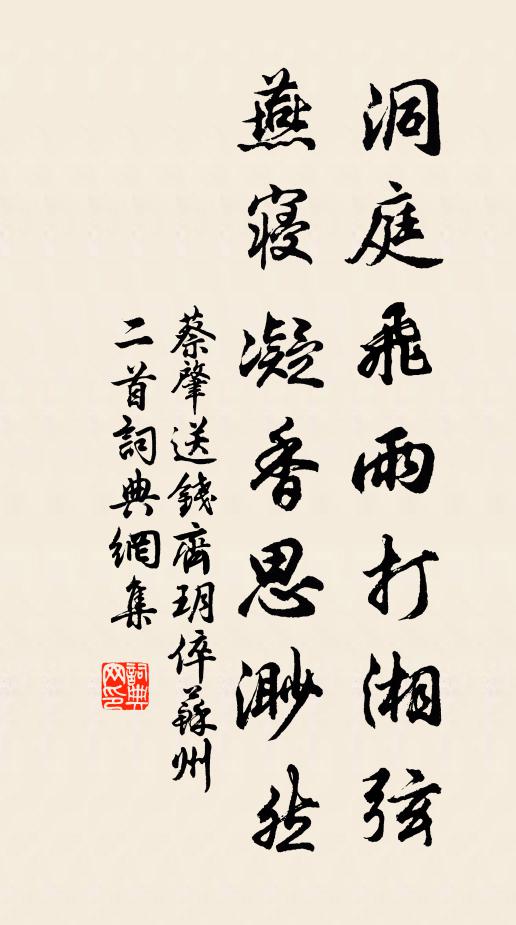 洞庭飛雨打湘弦
燕寝凝香思渺然
蔡肇送錢齊玥倅蘇州
二首詞典網集
詞典
网印